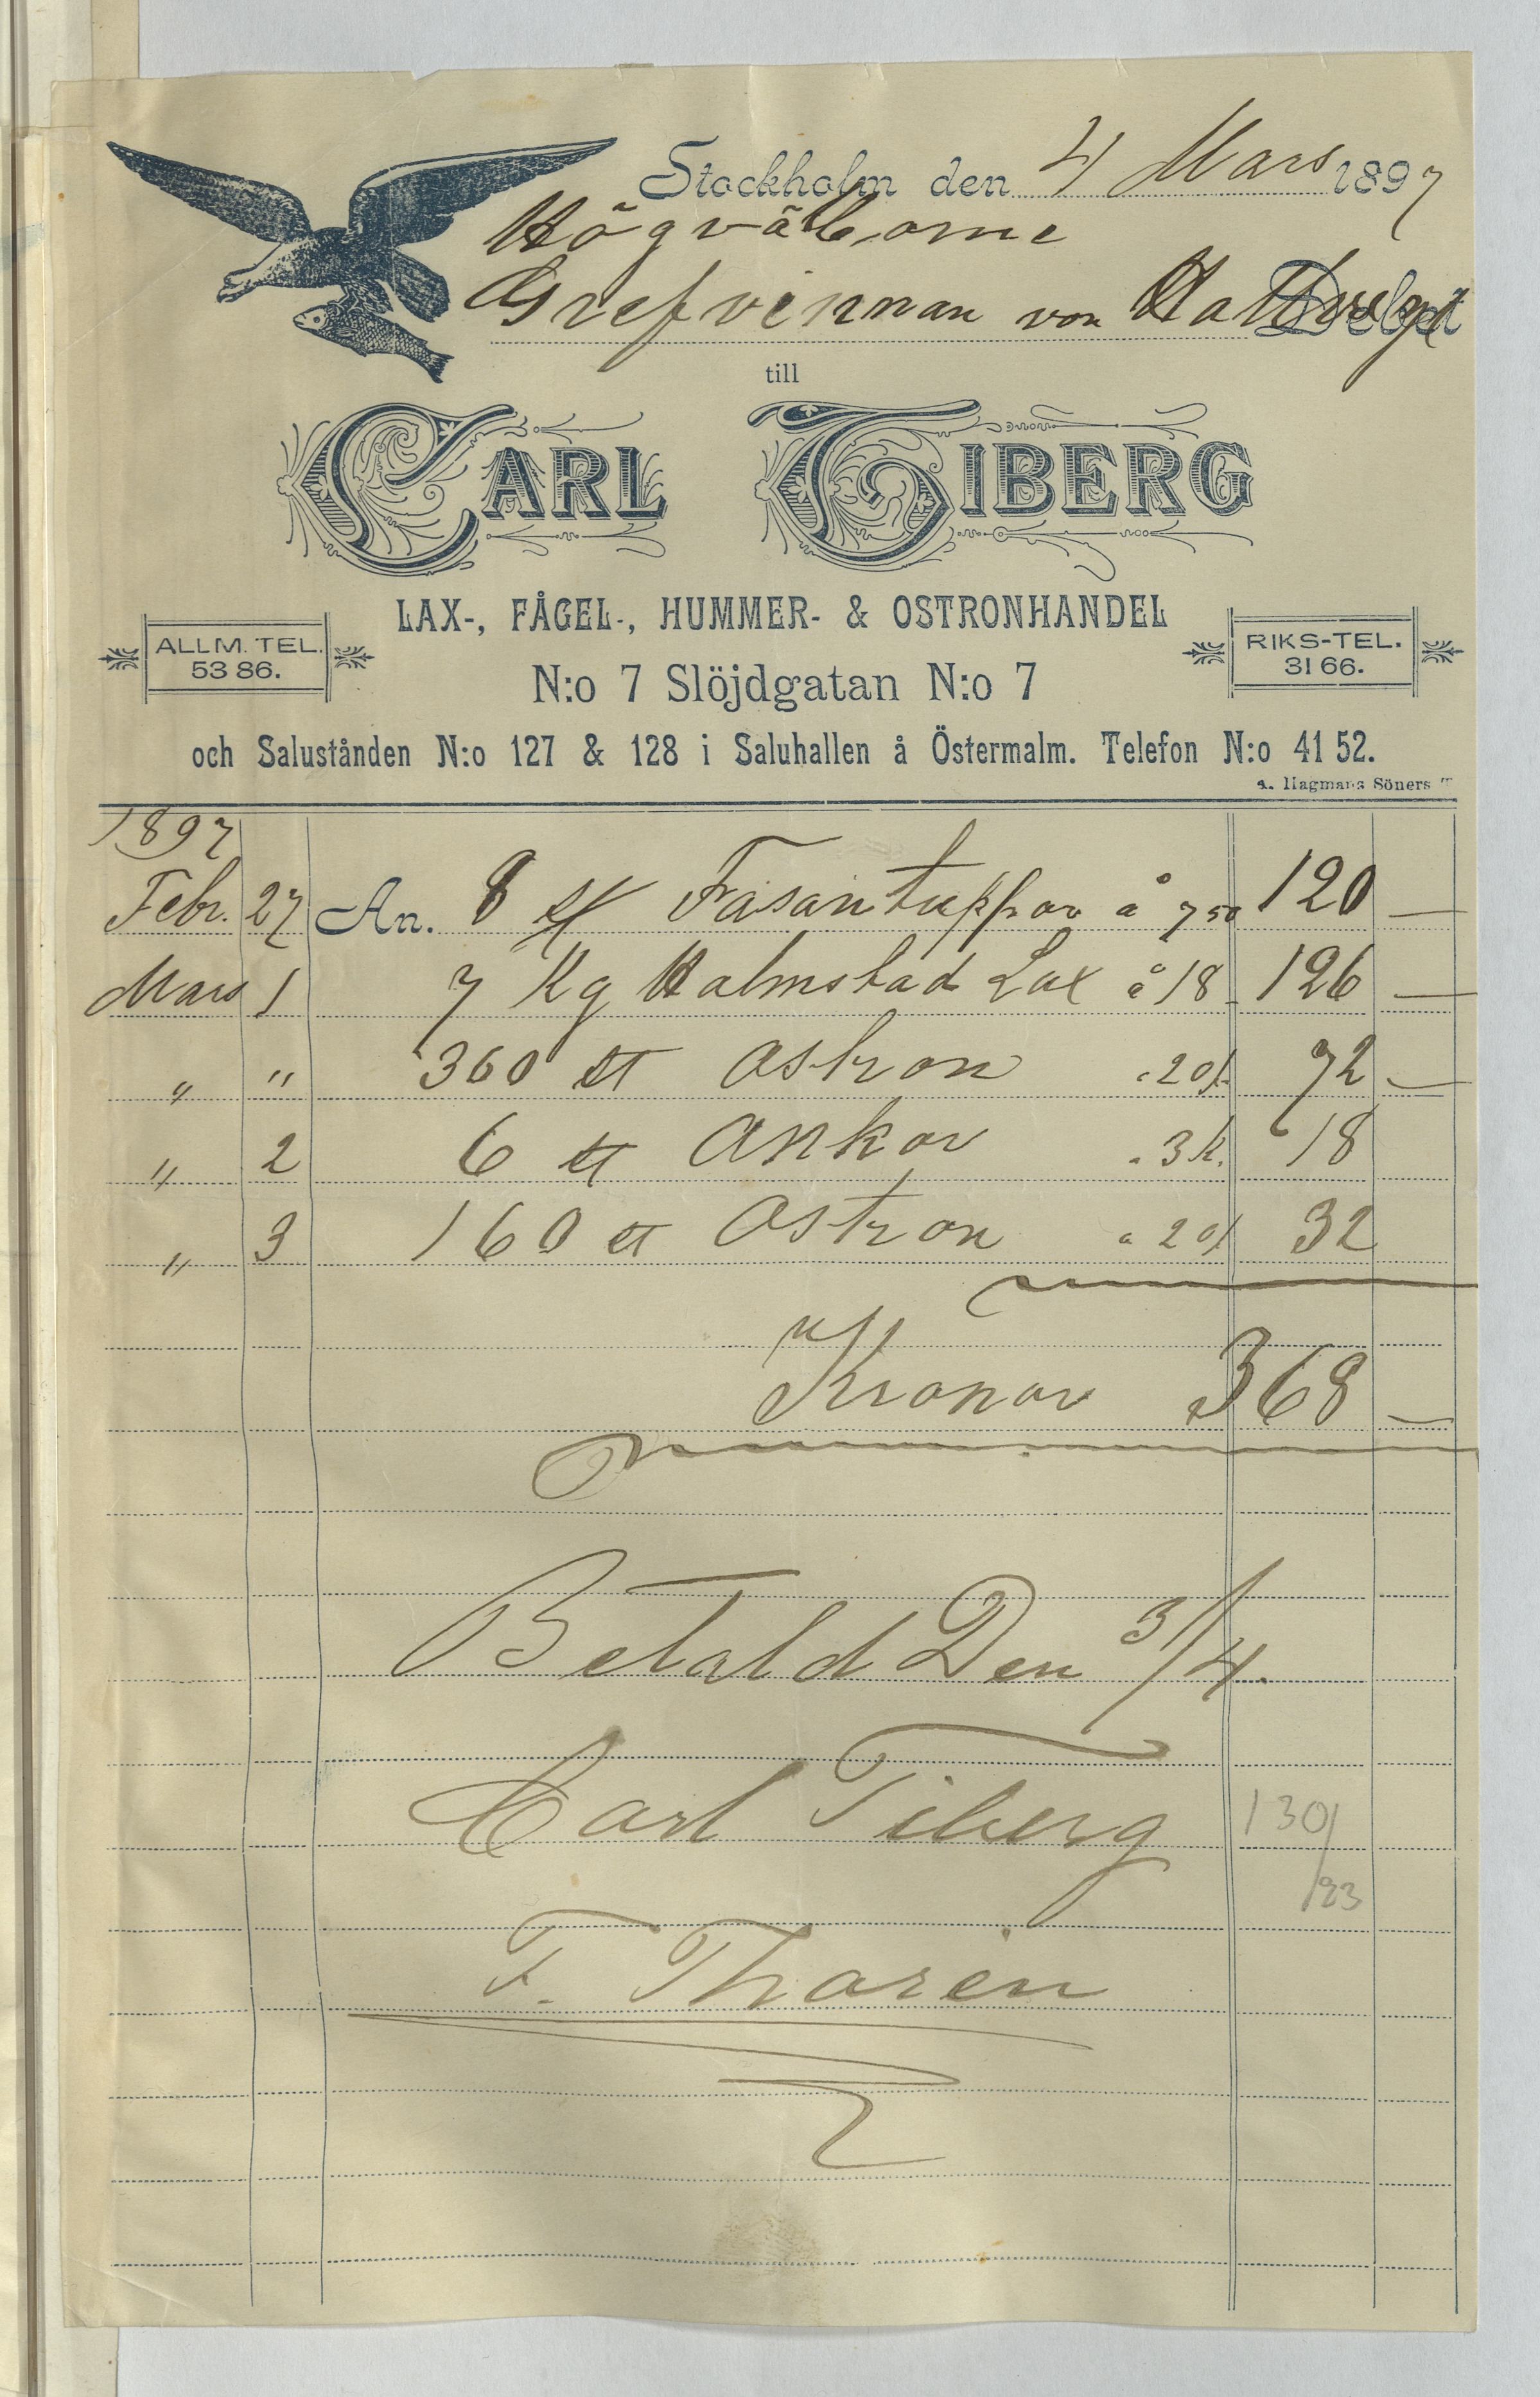 Stockholm den 4 Mars 1897
Högvälborne
Grefvinnan von Hallwyl Debet
till
CARL TIBERG
LAX-, FÅGEL-, HUMMER- & OSTRONHANDEL
ALLM. TEL. 53 86.
RIKS-TEL. 31 66.
N:o 7 Slöjdgatan N:o 7
och Salustånden N:o 127 & 128 i Saluhallen å Östermalm. Telefon N:o 41 52.
Hagmans Söners
1897
Febr. 27 An. 8 st Fasantuppar à 7 50 120 —
Mars 1 7 Kg Halmstad Lax à 18 - 126 —
" " 360 st Ostron " 20/- 72 —
" 2 6 st Ankor " 3 k. 18
" 3 160 st Ostron " 20/ 32
Kronor 368 —
Betald Den 3/4.
Carl Tiberg
130/
F. Tharin